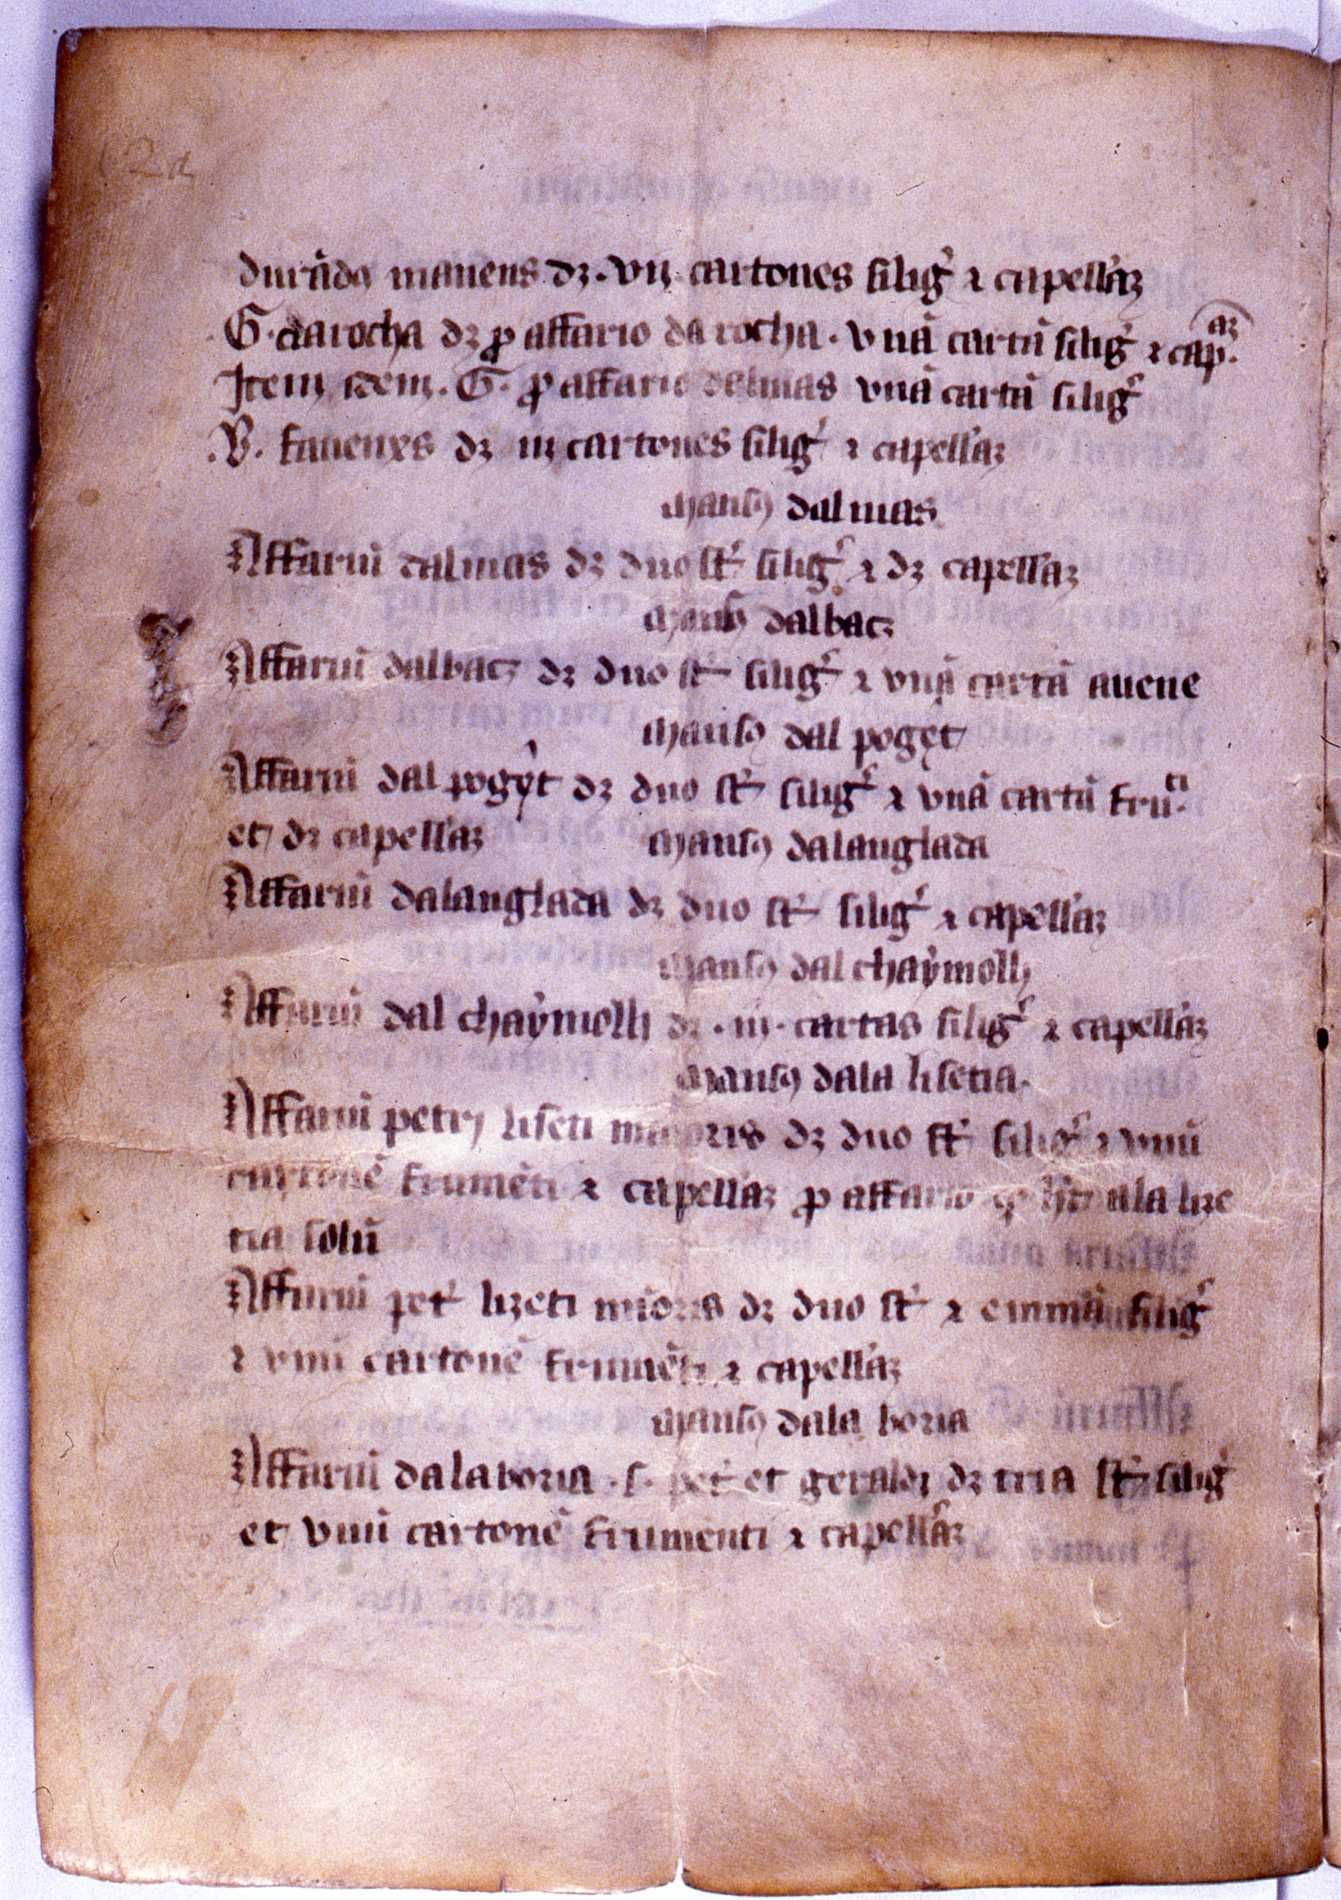 durādo mauens dꝫ · vıȷ · cartones silig̉ ⁊ capell'aꝫ
G · da rocha dꝫ ꝑ affario da rocha · vnā cartā silig̉ ⁊ cap̉aꝫ ·
Item idem · G · ꝓ affario dalmas vnā cartā silig̉
· B · fauenxs dꝫ iij cartones silig̉ ⁊ capell'aꝫ
Mansꝯ dalmas
Affariū dalmas dꝫ duo st̉ silig̉ ⁊ dꝫ capellaꝫ
Mansꝯ dalbacz
Affariū dalbacz dꝫ duo st̉ silig̉ ⁊ vnā cartā auene
Mansꝯ dal poget
Affariū dal poget dꝫ duo st̉ silig̉ ⁊ vnā cartā fruti ·
et dꝫ capell'aꝫ Mansꝯ dalanglada
Affariū dalanglada dꝫ duo st̉ silig̉ ⁊ capell'aꝫ
Mansꝯ dal chaẏmolh
Affariū dal chaẏmolh dꝫ · iij · cartas silig̉ ⁊ capell'aꝫ
Mansꝯ dala lisetia ·
Affariū petrj liseti maioris dꝫ duo st̉ silig̉ ⁊ vnū
cartonē frumēti ⁊ capell'aꝫ ꝓ affario ala lize
tia solū
Affariū pet̉ lizeti mīoris dꝫ duo st̉ ⁊ silig̉
⁊ vnū cartonē frumēti ⁊ capell'aꝫ
Mansꝯ dala boria
Affariū dalaboria · s · pet̉ et geraldi dꝫ tria st̉ silig̉
et vnū cartonē frumenti ⁊ capell'aꝫ